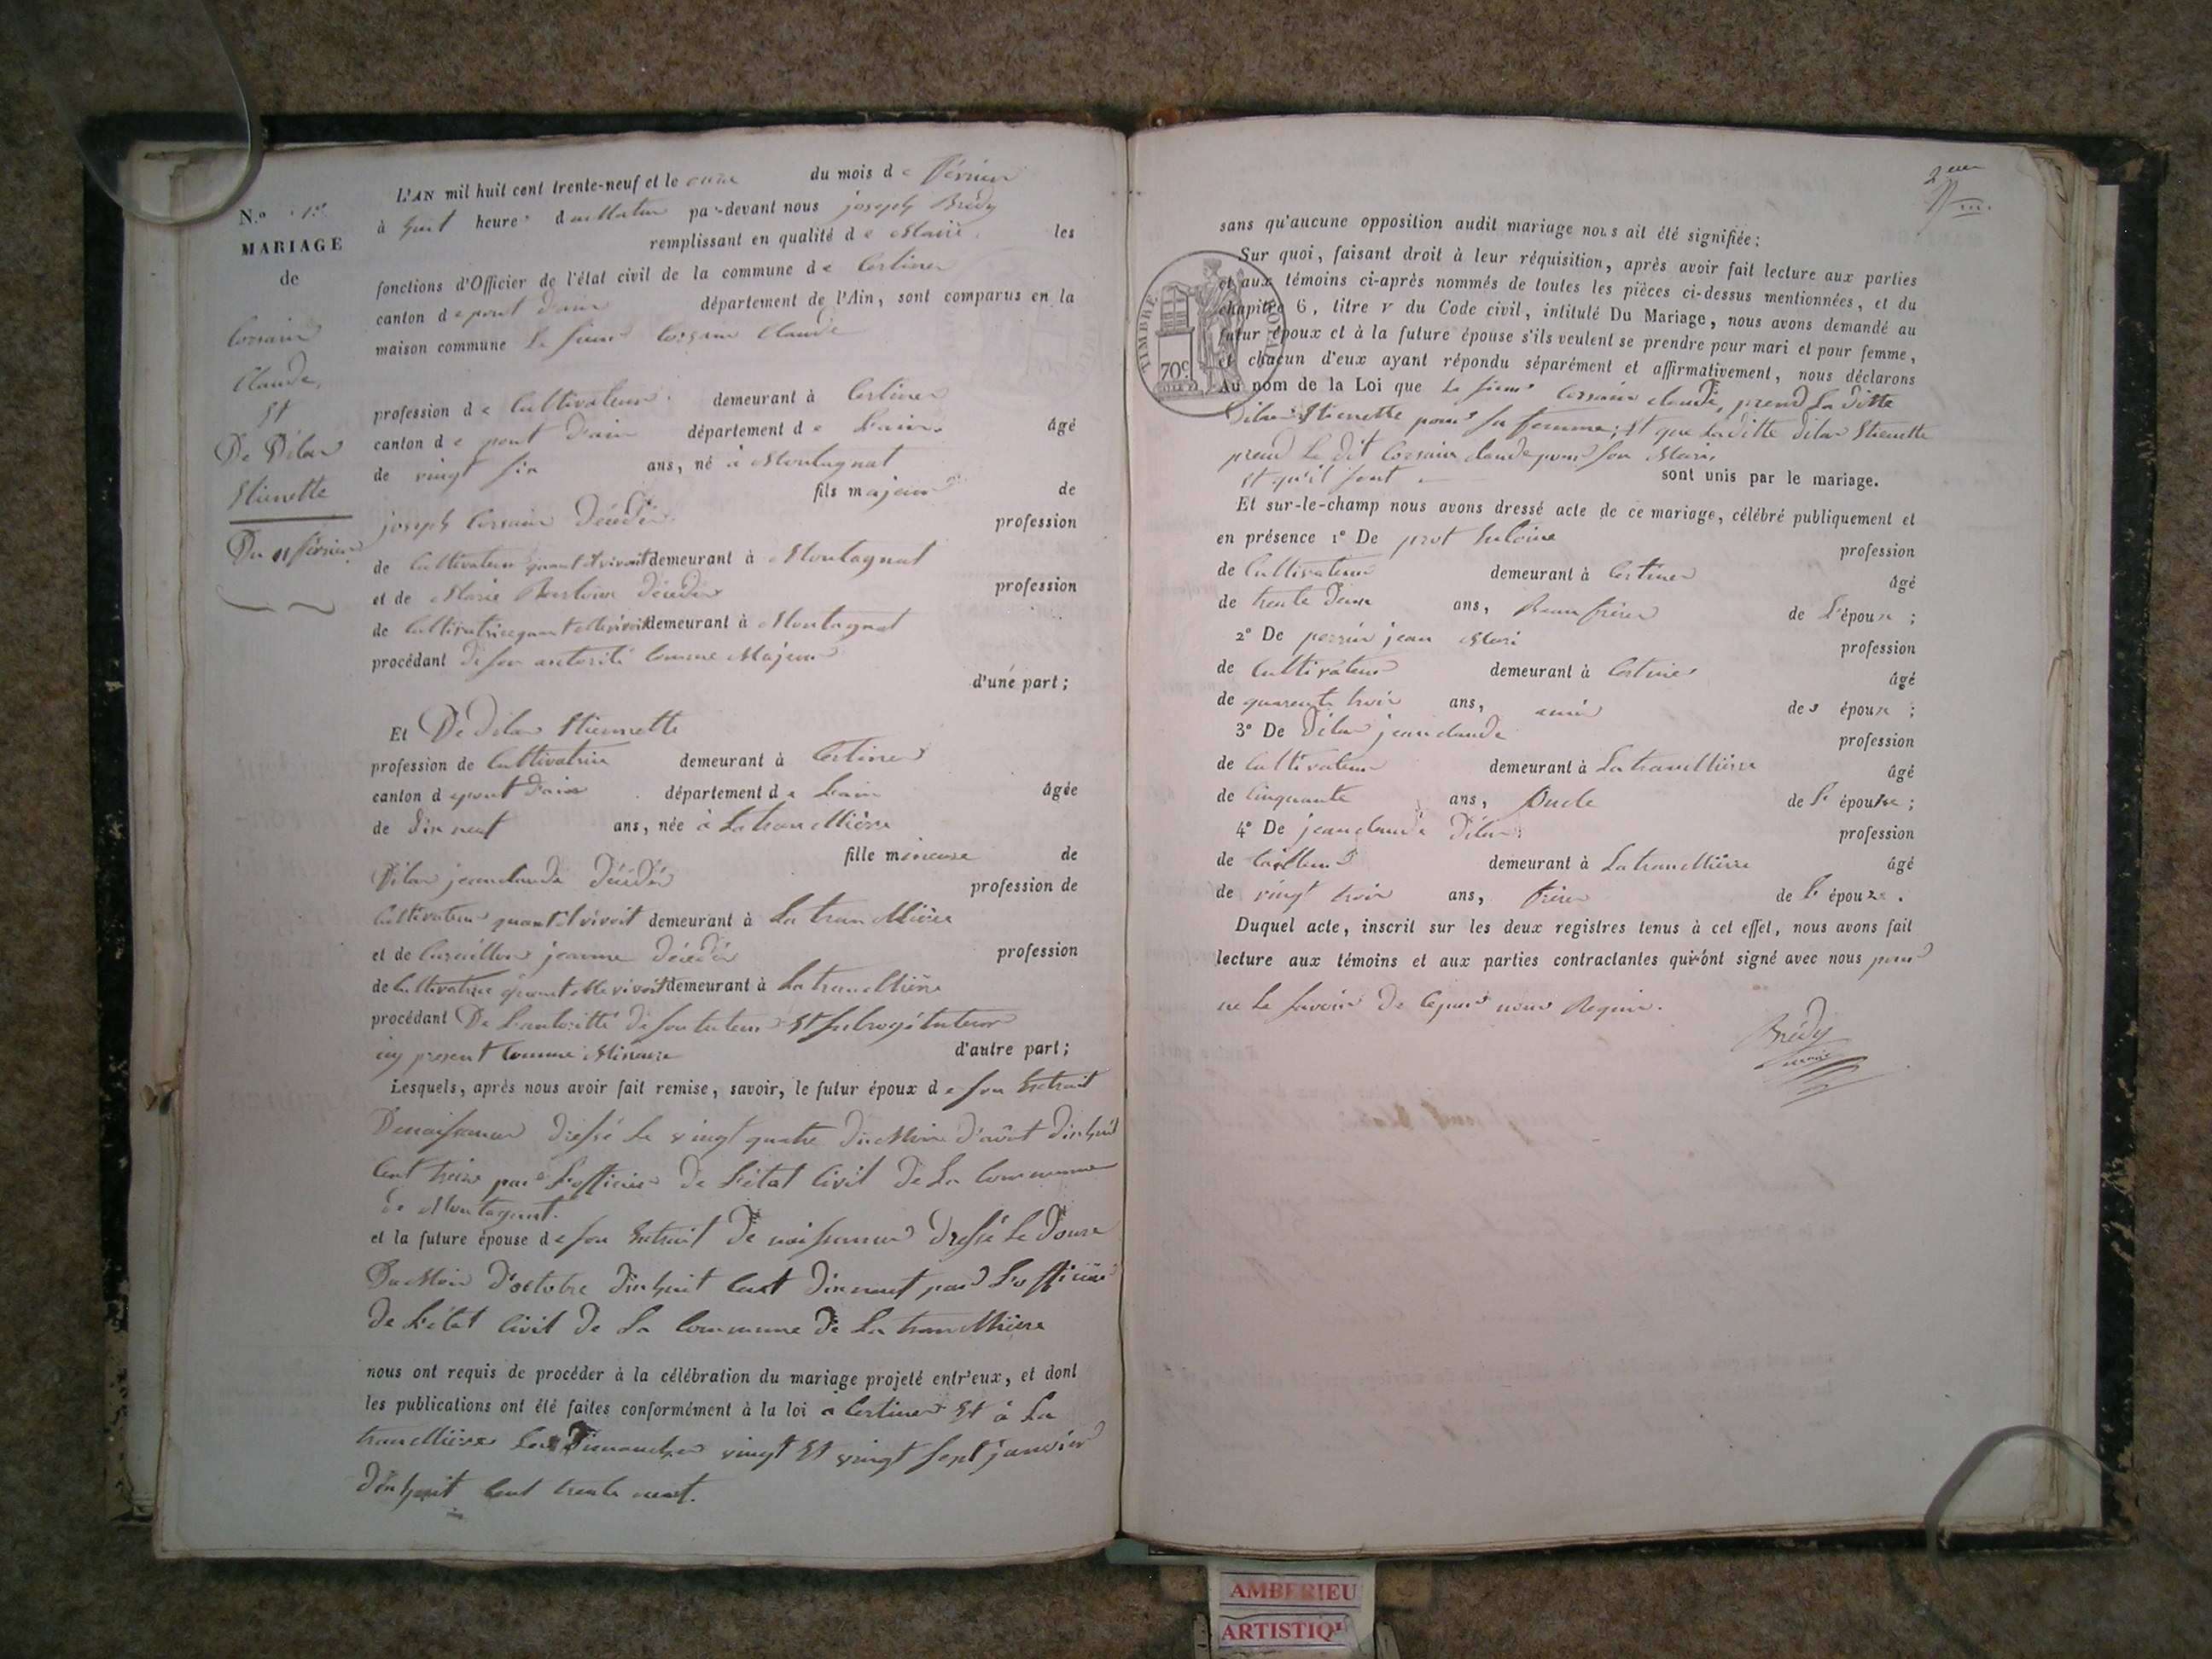 L'AN mil huit cent trente-neuf et le onze du mois de février
à huit heures du Matin par-devant nous joseph Brédy
remplissant en qualité de Maire les
fonctions d'Officier de l'état civil de la commune de Certines
canton de pont d'ain département de l'Ain, sont comparus en la
maison commune Le sieur Corsain Claude
profession de Cultivateur demeurant à Certines
canton de pont d'ain département de L'ain âgé
de vingt six ans, né à Montagnat
fils majeur de
joseph Corsain Décédé profession
de Cultivateur quant il vivoit demeurant à Montagnat
et de Marie Décédés profession
de Cultivatrice quant elle vivoit demeurant à Montagnat
procédant de son autorité Comme Majeur
d'une part ;
N.º 1er
MARIAGE
de
Corsain
Claude,
Et
De Dilas
Etienette
Du 11 février
Et De Dilas Etiennette
profession de Cultivatrice demeurant à Certines
canton de pont d'ain département de L'ain âgée
de dix neuf ans, née à La tranclière
fille mineure de
Dilas jean claude Décédés profession de
Cultivateur quant il vivoit demeurant à La tranclière
et de jeanne Décédés profession
de Cultivatrice quant elle vivoit demeurant à La tranclière
procédant De L'autoritté de son tuteur Et subrogé tuteur
icy present Comme Mineure d'autre part ;
Lesquels, après nous avoir fait remise, savoir, le futur époux de son Extrait
De naissance dressé Le vingt quatre du Mois d'août dix huit
Cent treize par L'officier De L'état Civil De La Commune
de Montagnat.
et la future épouse de son Extrait De naissance dressé Le douze
Du Mois d'octobre dix huit Cent dix neuf par L'officier
De L'état Civil De La Commune De La tranclière
nous ont requis de procéder à la célébration du mariage projeté entr'eux, et dont
les publications ont été faites conformément à la loi à Certines Et à La
tranclière Les Dimanches vingt Et vingt sept janvier
dix huit Cent trente neuf.
2em
sans qu'aucune opposition audit mariage nous ait été signifiée ;
Sur quoi, faisant droit à leur réquisition, après avoir fait lecture aux parties
et aux témoins ci-après nommés de toutes les pièces ci-dessus mentionnées, et du
chapitre 6, titre V du Code civil, intitulé Du Mariage, nous avons demandé au
futur époux et à la future épouse s'ils veulent se prendre pour mari et pour femme,
et chacun d'eux ayant répondu séparément et affirmativement, nous déclarons
Au nom de la Loi que Le sieur Corsain claude, prend La ditte
Dilas Etienette pour sa femme ; Et que La ditte dilas Etienette
prend Le dit Corsain claude pour son Mari,
Et qu'il sont sont unis par le mariage.
TIMBRE ROYAL
70c.
Et sur-le-champ nous avons dressé acte de ce mariage, célébré publiquement et
en présence 1º De prot antoine profession
de Cultivateur demeurant à Certines âgé
de trente deux ans, Beau frère de L'épouse ;
2º De perrin jean Mari profession
de Cultivateur demeurant à Certines âgé
de quarente trois ans, amis des époux ;
3º De Dilas jean claude profession
de Cultivateur demeurant à La tranclière âgé
de Cinquante ans, Oncle de L'épouse ;
4º De jean claude Dilas profession
de tailleur demeurant à La tranclière âgé
de vingt trois ans, frère de L'épouse.
Duquel acte, inscrit sur les deux registres tenus à cet effet, nous avons fait
lecture aux témoins et aux parties contractantes qui ont signé avec nous pour
ne Le savoir de Ce par nous Requis.
Brédy
maire
AMBERIEU
ARTISTIQ